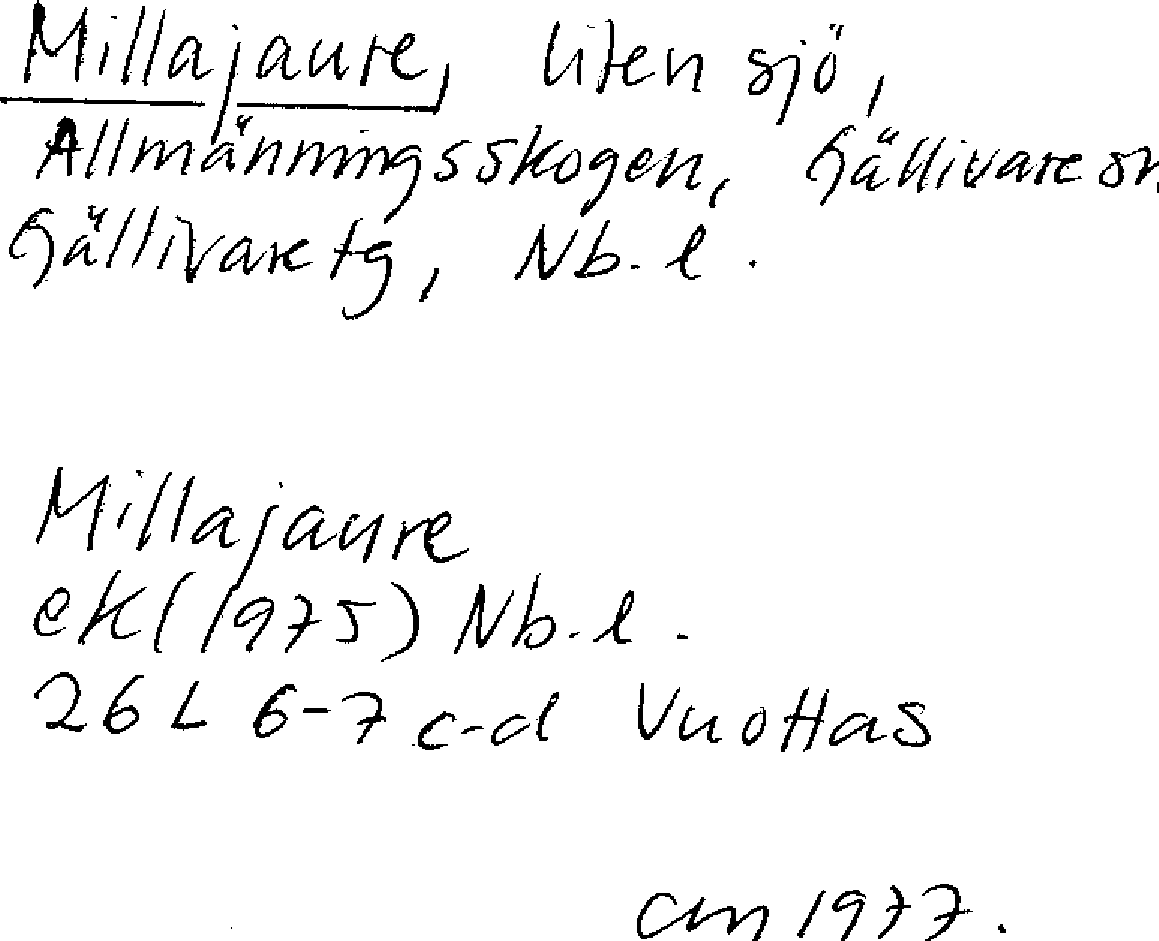 Millajaure, liten sjö,
Allmänningsskogen, Gällivare sn,
Gällivare tg, Nb. l.
Millajaure
ek (1975) Nb. l.
26 L 6-7 c-d Vuottas
cm 1977.